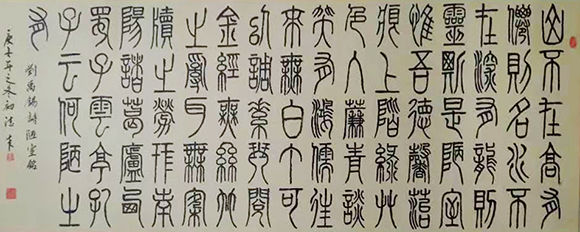 山不在高有
僊則名水不
在深有龍則
靈斯是陋室
惟吾德馨苔
痕上階綠草
色入簾青談
笑有鴻儒往
來無白丁可
以調素琴閱
金經無絲竹
之亂耳無案
牘之勞形南
陽諸葛廬西
蜀子雲亭孔
子云何陋之
有
劉禹錫詩陋室銘
庚子年之冬初